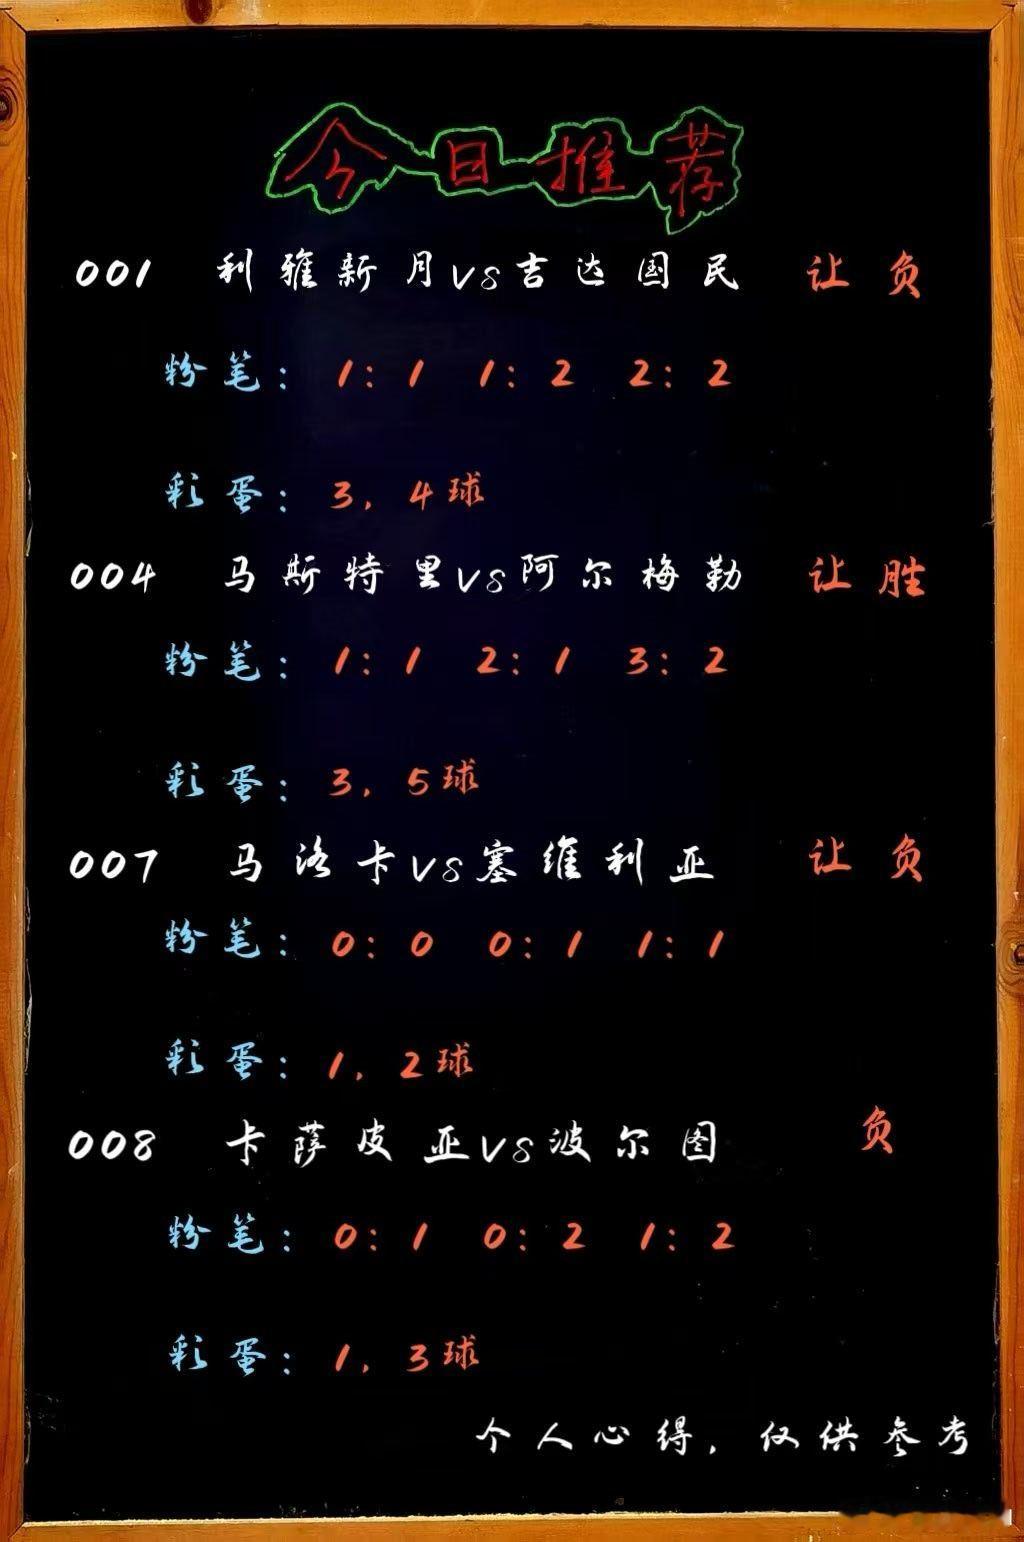 今日推荐
001 利雅新月vs吉达国民 让负
粉笔: 1:1 1:2 2:2
彩蛋: 3, 4球
004 马斯特里vs阿尔梅勒 让胜
粉笔: 1:1 2:1 3:2
彩蛋: 3, 5球
007 马洛卡vs塞维利亚 让负
粉笔: 0:0 0:1 1:1
彩蛋: 1, 2球
008 卡萨皮亚vs波尔图 负
粉笔: 0:1 0:2 1:2
彩蛋: 1, 3球
个人心得, 仅供参考